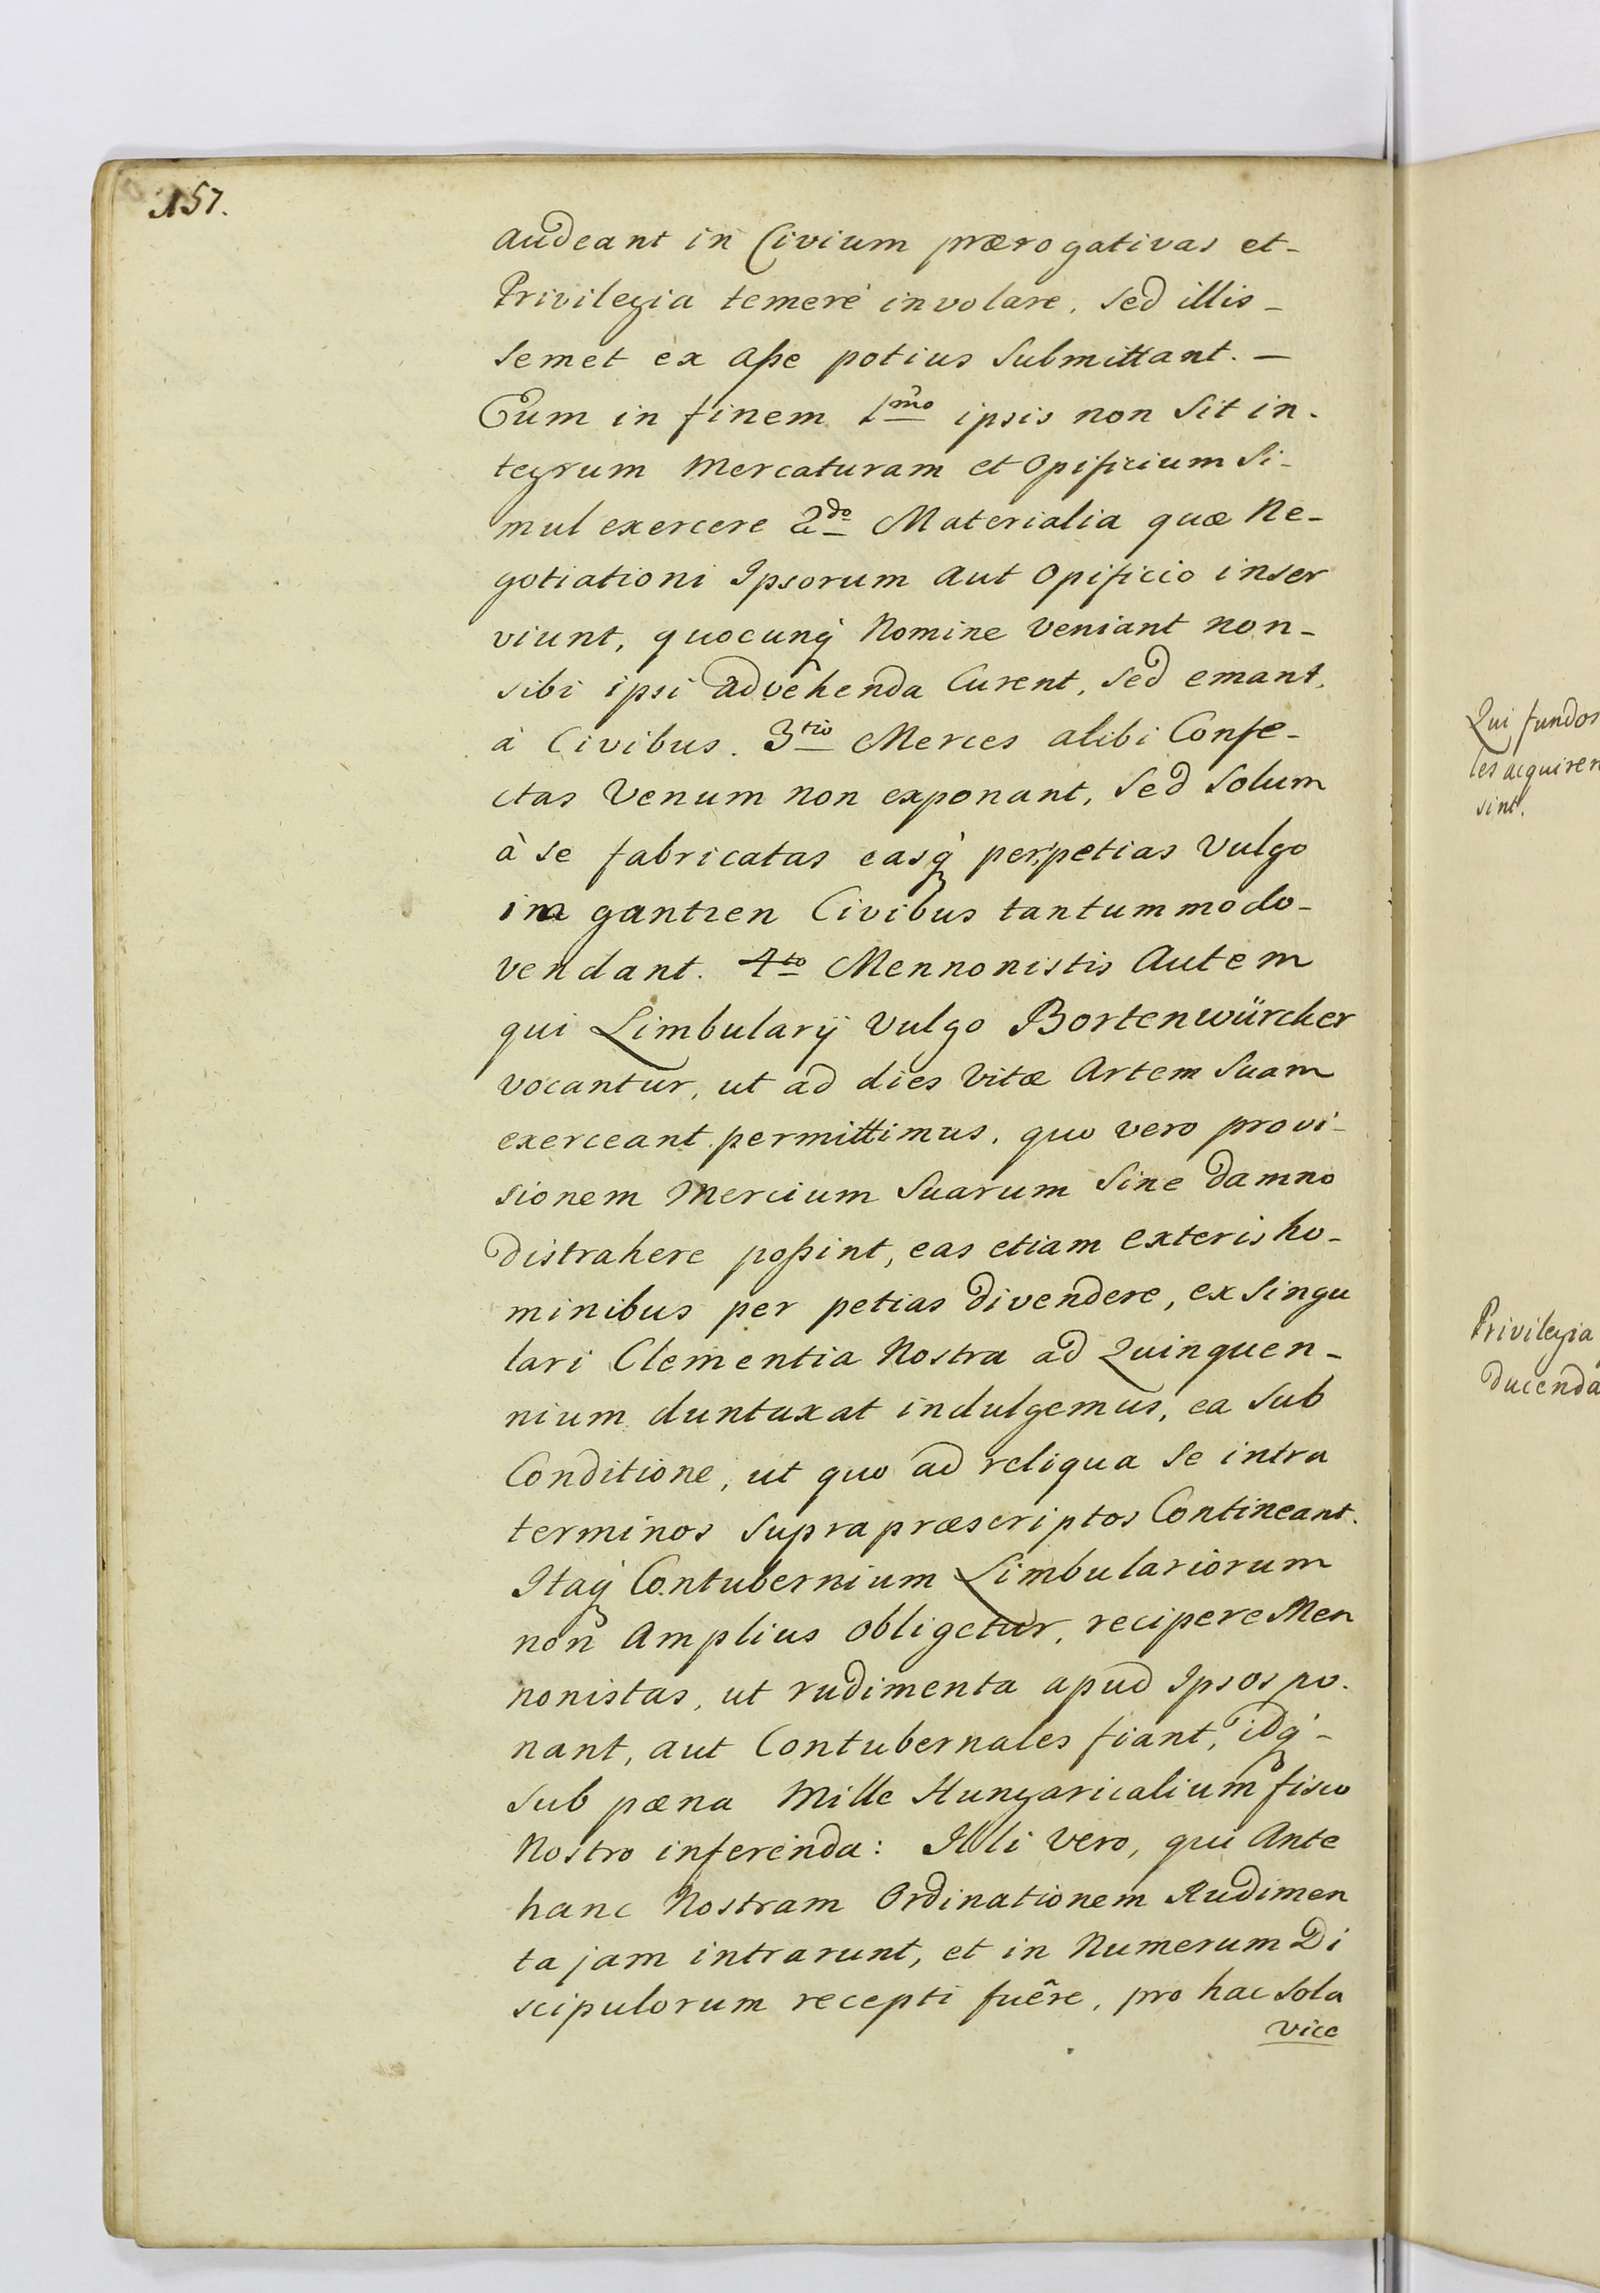 157.
audeant in Civium prærogativas et-
Privilegia temerè involare, sed illis-
semet ex aße potius submittant. -
Eum in finem 1mo ipsis non sit in-
tegrum mercaturam et opificium si-
mul exercere 2do Materialia quæ Ne-
gotiationi Ipsorum aut opificio inser
viunt, quocunq Nomine veniant non-
sibi ipsi advehenda curent, sed emant,
à Civibus. 3tio Merces alibi Confe-
ctas venum non exponant, sed solum
à se fabricatas easq per petias vulgo
in gantzen Civibus tantummodo-
vendant. 4to Mennonistis autem
qui Limbularij vulgo Bortenwürcker
vocantur, ut ad dies vitæ artem suam
exerceant permittimus, quo vero provi-
sionem mercium suarum sine damno
distrahere poßint, eas etiam exteris ho-
minibus per petias divendere, ex singu
lari Clementia Nostra ad Quinquen-
nium duntaxat indulgemus, ea sub
Conditione, ut quo ad reliqua se intra
terminos supra præscriptos Contineant.
Itaq Contubernium Limbulariorum
non amplius obligetur, recipere Men
nonistas, ut rudimenta apud Ipsos po-
nant, aut Contubernales fiant, idq-
sub pœna Mille Hungaricalium fisco
Nostro inferenda: Illi vero, qui ante
hanc Nostram Ordinationem Rudimen
ta jam intrarunt, et in Numerum Di
scipulorum recepti fuêre, pro hac sola
vice
Qui fundos
les acquiren
sint.
Privilegia
ducenda